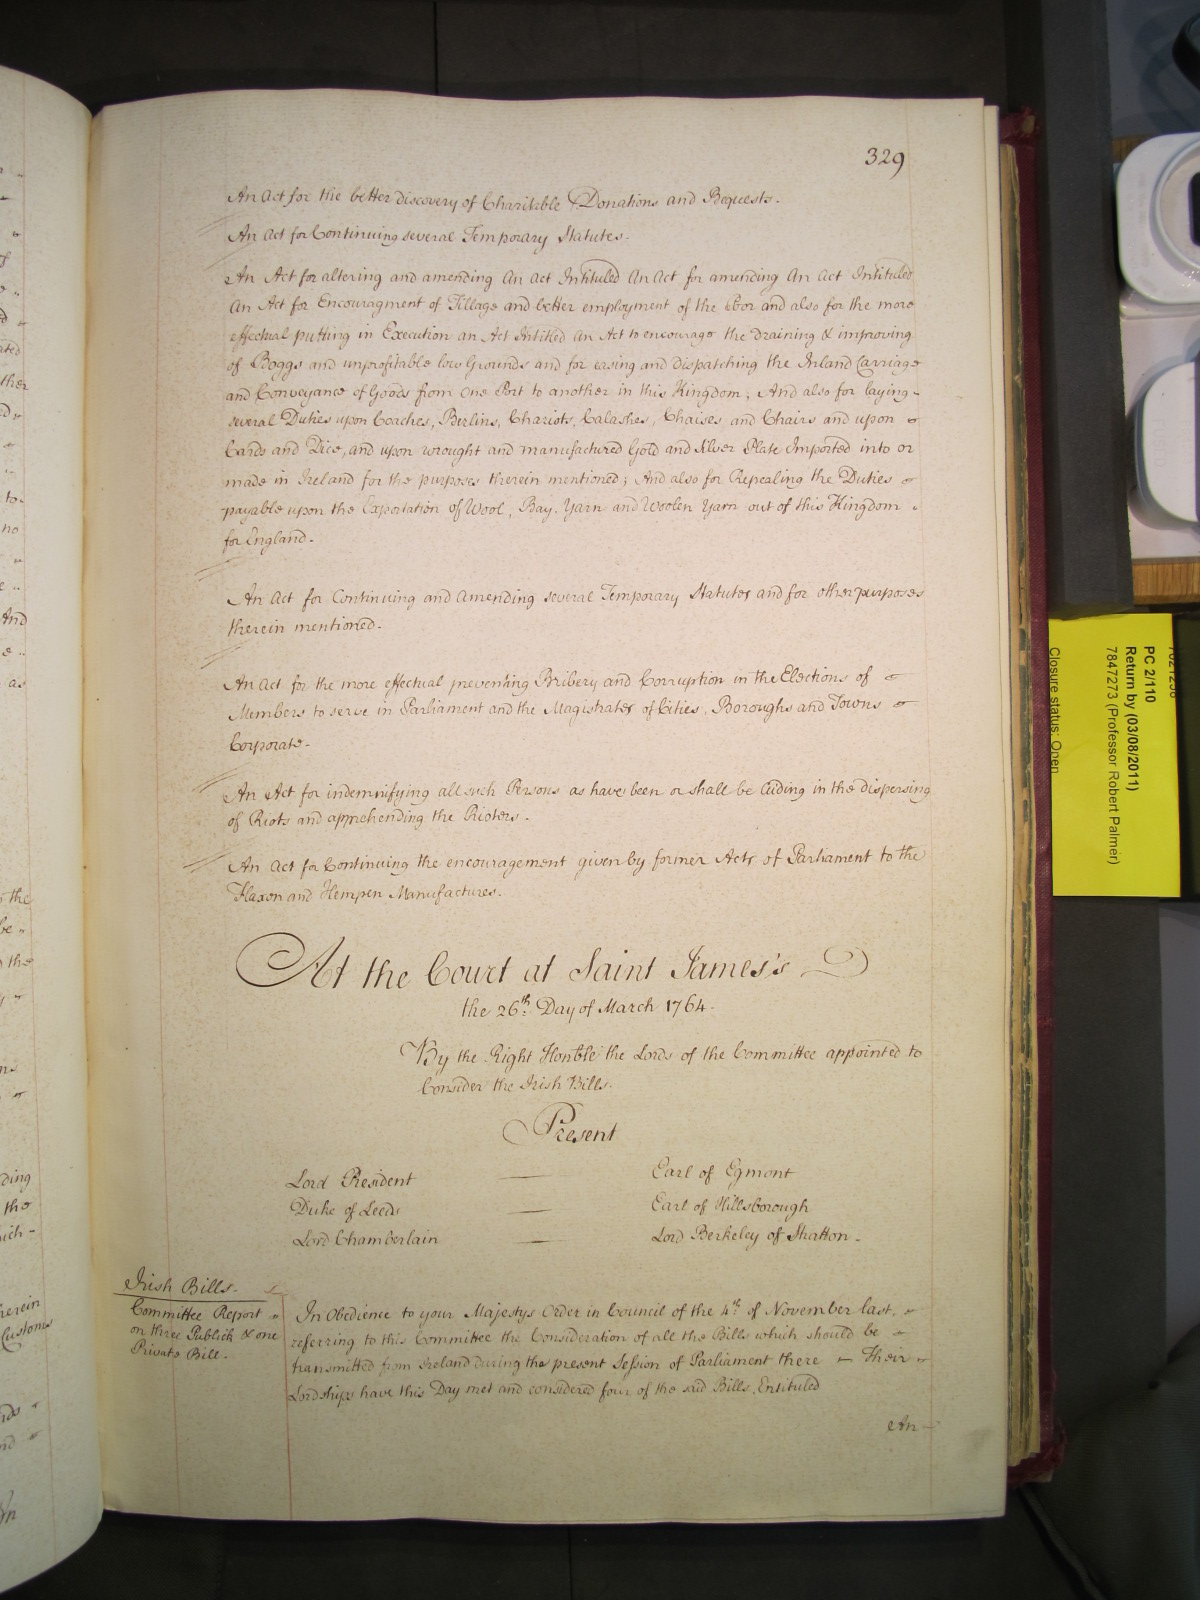 329
An Act for the better discovery of Charitable Donations and Bequests.
An Act for Continuing several Temporary Statutes.
An Act for altering and amending An Act Intituled An Act for amending An Act Intituled
An Act for Encouragment of Tillage and better employment of the Poor and also for the more
effectual putting in Execution an Act Intitled An Act to encourage the Draining & improving
of Boggs and unprofitable low Grounds and for easing and Dispatching the Inland Carriage
and Conveyance of Goods from One Port to another in this Kingdom; And also for laying
several Duties upon Coaches, Berlins, Chariots, Calashes, Chaises and Chairs and upon
Cards and Dice, and upon wrought and manufactured Gold and Silver Plate Imported into or
made in Ireland for the purposes therein mentioned; And also for Repealing the Duties
payable upon the Exportation of Wool, Bay Yarn and Woolen Yarn out of this Kingdom
for England.
An Act for Continuing and Amending several Temporary Statutes and for other purposes
therein mentioned.
An Act for the more effectual preventing Bribery and Corruption in the Elections of
Members to serve in Parliament and the Magistrates of Cities, Boroughs and Towns
Corporate.
An Act for indemnifying all such Persons as have been or shall be Aiding in the dispersing
of Riots and apprehending the Rioters.
An Act for Continuing the encouragement given by former Acts of Parliament to the
Flaxen and Hempen Manufactures.
At the Court at Saint James's
the 26th. Day of March 1764.
By the Right Honble the Lords of the Committee appointed to
Consider the Irish Bills.
Present
Lord President — Earl of Egmont
Duke of Leeds — Earl of Hillsborough
Lord Chamberlain — Lord Berkeley of Stratton.
Irish Bills.
Committee Report
on three Publick & one
Private Bill.
In Obedience to your Majestys Order in Council of the 4th. of November last,
referring to this Committee the Consideration of all the Bills which should be
transmitted from Ireland during the present Session of Parliament there — Their
Lordships have this Day met and considered four of the said Bills, Entituled
An
PC 2/110
Return by (03/08/2011)
7847273 (Professor Robert Palmer)
Closure status: Open